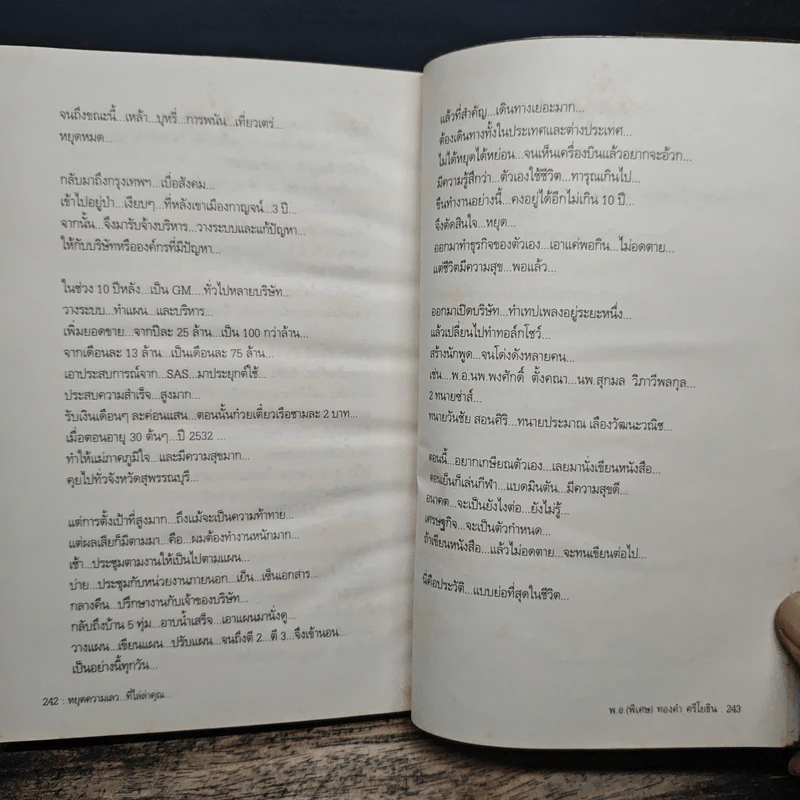 จนถึงขณะนี้...เหล้า...บุหรี่...การพนัน...เที่ยวเตร่...
หยุดหมด...
กลับมาถึงกรุงเทพฯ...เบื่อสังคม...
เข้าไปอยู่ป่า...เงียบๆ...ที่หลังเขาเมืองกาญจน์...3 ปี...
จากนั้น...จึงมารับจ้างบริหาร...วางระบบและแก้ปัญหา...
ให้กับบริษัทหรือองค์กรที่มีปัญหา...
ในช่วง 10 ปีหลัง...เป็น GM....ทั่วไปหลายบริษัท...
วางระบบ...ทำแผน...และบริหาร...
เพิ่มยอดขาย...จากปีละ 25 ล้าน...เป็น 100 กว่าล้าน...
จากเดือนละ 13 ล้าน...เป็นเดือนละ 75 ล้าน...
เอาประสบการณ์จาก...SAS...มาประยุกต์ใช้...
ประสบความสำเร็จ...สูงมาก...
รับเงินเดือนๆ ละค่อนแสน...ตอนนั้นก๋วยเตี๋ยวเรือชามละ 2 บาท...
เมื่อตอนอายุ 30 ต้นๆ...ปี 2532 ...
ทำให้แม่ภาคภูมิใจ...และมีความสุขมาก...
คุยไปทั่วจังหวัดสุพรรณบุรี...
แต่การตั้งเป้าที่สูงมาก...ถึงแม้จะเป็นความท้าทาย...
แต่ผลเสียก็มีตามมา...คือ...ผมต้องทำงานหนักมาก...
เช้า...ประชุมตามงานให้เป็นไปตามแผน...
บ่าย...ประชุมกับหน่วยงานภายนอก...เย็น...เซ็นเอกสาร...
กลางคืน...ปรึกษางานกับเจ้าของบริษัท...
กลับถึงบ้าน 5 ทุ่ม...อาบน้ำเสร็จ...เอาแผนมานั่งดู...
วางแผน...เขียนแผน...ปรับแผน...จนถึงตี 2...ตี 3...จึงเข้านอน...
เป็นอย่างนี้ทุกวัน...
242 : หยุดความเลว...ที่ไล่ล่าคุณ...
แล้วที่สำคัญ...เดินทางเยอะมาก...
ต้องเดินทางทั้งในประเทศและต่างประเทศ...
ไม่ได้หยุดได้หย่อน...จนเห็นเครื่องบินแล้วอยากจะอ้วก...
มีความรู้สึกว่า...ตัวเองใช้ชีวิต...ทารุณเกินไป...
ขืนทำงานอย่างนี้...คงอยู่ได้อีกไม่เกิน 10 ปี...
จึงตัดสินใจ...หยุด...
ออกมาทำธุรกิจของตัวเอง...เอาแค่พอกิน...ไม่อดตาย...
แต่ชีวิตมีความสุข...พอแล้ว...
ออกมาเปิดบริษัท...ทำเทปเพลงอยู่ระยะหนึ่ง...
แล้วเปลี่ยนไปทำทอล์กโชว์...
สร้างนักพูด...จนโด่งดังหลายคน...
เช่น...พ.อ.นพ.พงศักดิ์ ตั้งคณา...นพ.สุกมล วิภาวีพลกุล...
2 ทนายซ่าส์...
ทนายวันชัย สอนศิริ...ทนายประมาณ เลืองวัฒนะวณิช...
ตอนนี้...อยากเกษียณตัวเอง...เลยมานั่งเขียนหนังสือ...
ตอนเย็นก็เล่นกีฬา...แบดมินตัน...มีความสุขดี...
อนาคต...จะเป็นยังไงต่อ...ยังไม่รู้...
เศรษฐกิจ...จะเป็นตัวกำหนด...
ถ้าเขียนหนังสือ...แล้วไม่อดตาย...จะทนเขียนต่อไป...
นี่คือประวัติ...แบบย่อที่สุดในชีวิต...
พ.อ.(พิเศษ) ทองคำ ศรีโยธิน : 243